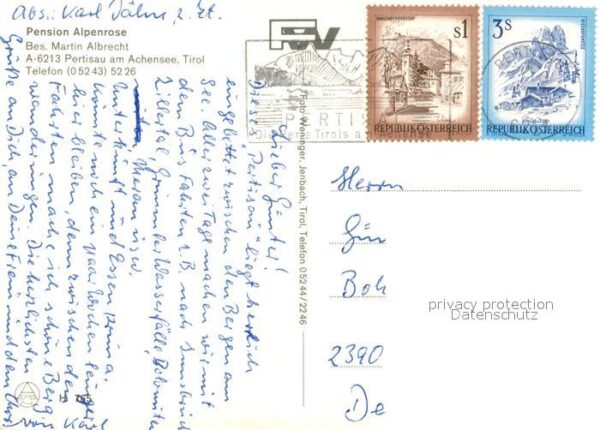 Abs.: Karl Jähn, z. Zt.
Pension Alpenrose
Bes. Martin Albrecht
A-6213 Pertisau am Achensee, Tirol
Telefon (05243) 5226
Lieber Günter!
Dieses "Pertisau" liegt herrlich
eingebettet zwischen den Bergen am
See. Aller zwei Tage machen wir mit
dem Bus Fahrten z.B. nach Innsbruck
Zillertal, Grimmler Wasserfälle, Dolomiten
Meran usw.
Unterkunft und Essen prima.
Könnte mich ein paar Wochen länger
hier bleiben, denn zwischen den
Fahrten mache ich schöne Berg
wanderungen. Die herzlichsten
Grüße an Dich, an Deine Frau und den
von Karl
Foto Weninger, Jenbach, Tirol, Telefon 05244/2246
H 765
PERTIS
KARLENBERGERDORF
S1
REPUBLIK ÖSTERREICH
3S
REPUBLIK ÖSTERREICH
Herrn
Gün
Boh
2390
De
privacy protection
Datenschutz